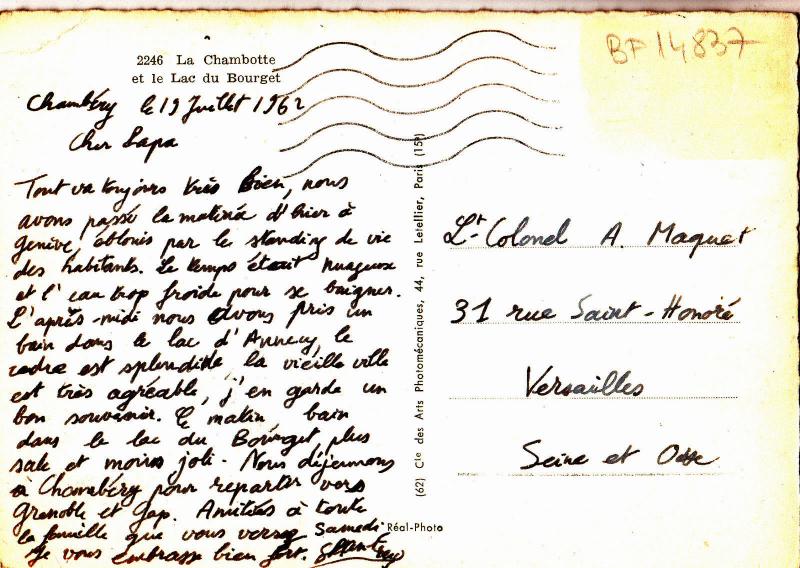 2246 La Chambotte
et le Lac du Bourget
BF 14837
Chambéry le 19 Juillet 1962
Cher Papa
Tout va toujours très bien, nous
avons passé la matinée d'hier à
Genève, éblouis par le standing de vie
des habitants. Le temps était nuageux
et l'eau trop froide pour se baigner.
L'après-midi nous avons pris un
bain dans le lac d'Annecy, le
cadre est splendide, la vieille ville
est très agréable, j'en garde un
bon souvenir. Ce matin bain
dans le lac du Bourget, plus
sale et moins joli. Nous déjeunons
à Chambéry pour repartir vers
Grenoble et Gap. Amitiés à toute
la famille que vous verrez Samedi
Je vous embrasse bien fort.
(62) Cie des Arts Photomécaniques, 44, rue Letellier, Paris (15e)
Réal-Photo
Lt Colonel A. Maquet
31 rue Saint-Honoré
Versailles
Seine et Oise